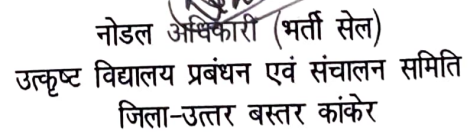 नोडल अधिकारी (भर्ती सेल)
उत्कृष्ट विद्यालय प्रबंधन एवं संचालन समिति
जिला-उत्तर बस्तर कांकेर